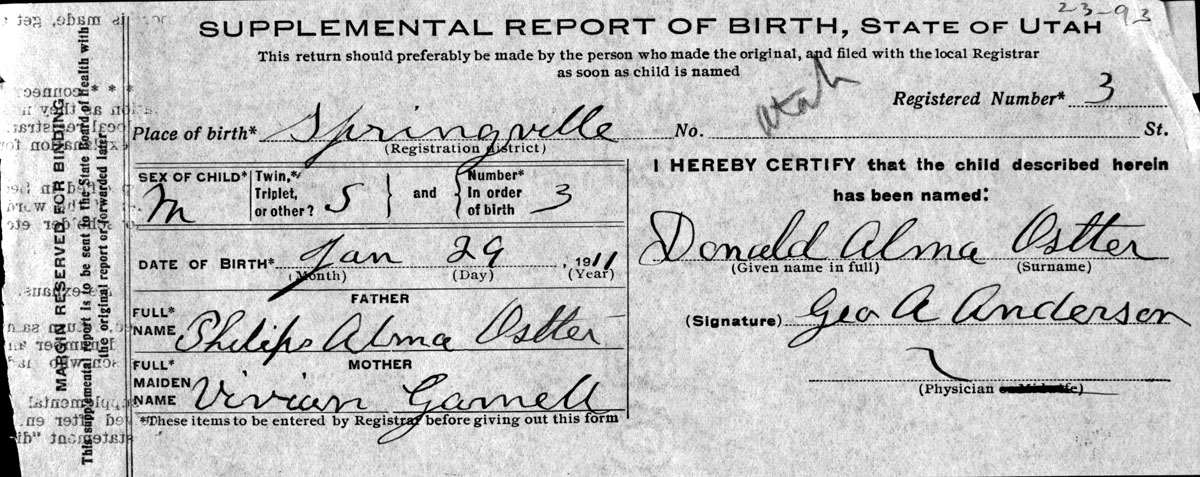 23-93
SUPPLEMENTAL REPORT OF BIRTH, STATE OF UTAH
This return should preferably be made by the person who made the original, and filed with the local Registrar
as soon as child is named
Utah
Registered Number* 3
Place of birth* Springville No. St.
(Registration district)
SEX OF CHILD* M
Twin,* Triplet, or other? S } and { Number* In order of birth 3
DATE OF BIRTH* Jan 29, 1911
(Month) (Day) (Year)
FATHER
FULL* NAME Philips Alma Ostter
MOTHER
FULL* MAIDEN NAME Vivian
*These items to be entered by Registrar before giving out this form
I HEREBY CERTIFY that the child described herein
has been named:
Donald Alma Ostter
(Given name in full) (Surname)
(Signature) Geo A Anderson
(Physician or Midwife)
MARGIN RESERVED FOR BINDING
This supplemental report is to be sent to the State Board of Health with
the original report or forwarded later